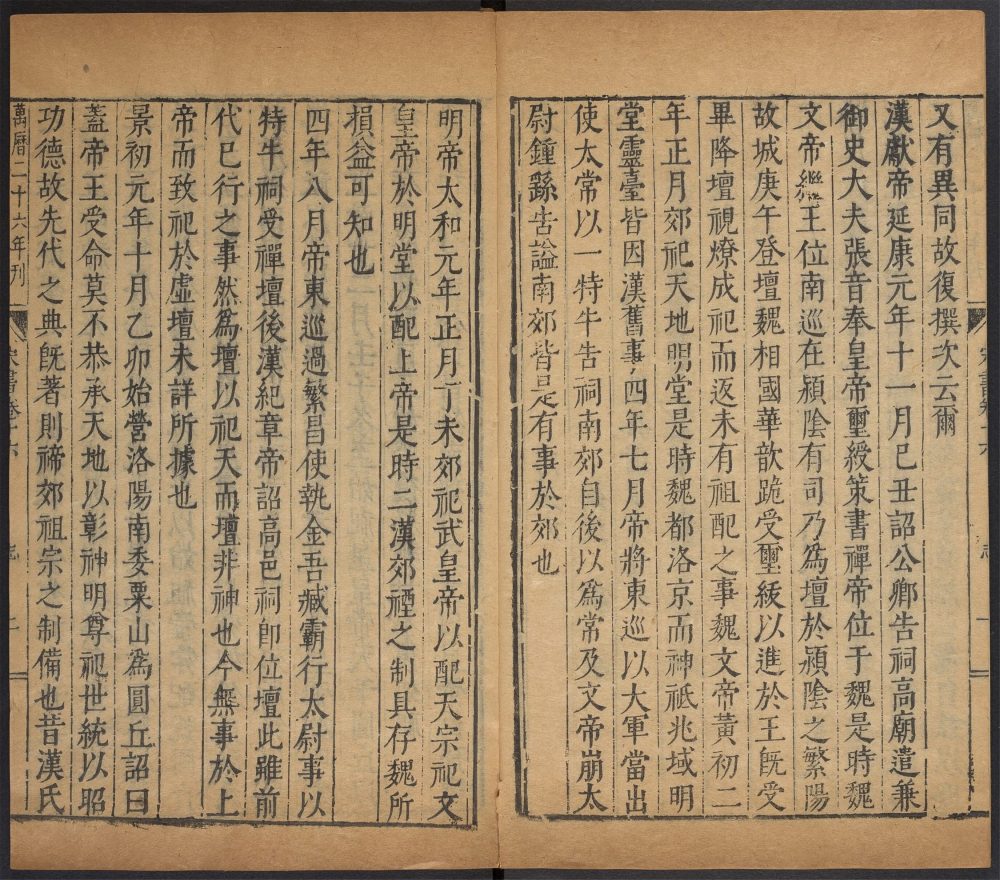 又有異同故復撰次云爾
漢獻帝延康元年十一月己丑詔公卿告祠高廟遣兼
御史大夫張音奉皇帝璽綬策書禪帝位于魏是時魏
文帝繼王位南巡在潁陰有司乃爲壇於潁陰之繁陽
故城庚午登壇魏相國華歆跪受璽紱以進於王旣受
畢降壇視燎成祀而返未有祖配之事魏文帝黃初二
年正月郊祀天地明堂是時魏都洛京而神祇兆域明
堂靈臺皆因漢舊事四年七月帝將東巡以大軍當出
使太常以一特牛告祠南郊自後以爲常及文帝崩太
尉鍾繇告謚南郊皆是有事於郊也
明帝太和元年正月丁未郊祀武皇帝以配天宗祀文
皇帝於明堂以配上帝是時二漢郊禋之制具存魏所
損益可知也
四年八月帝東巡過繁昌使執金吾臧霸行太尉事以
特牛祠受禪壇後漢紀章帝詔高邑祠卽位壇此雖前
代已行之事然爲壇以祀天而壇非神也今無事於上
帝而致祀於虛壇未詳所據也
景初元年十月乙卯始營洛陽南委粟山爲圓丘詔曰
蓋帝王受命莫不恭承天地以彰神明尊祀世統以昭
功德故先代之典旣著則禘郊祖宗之制備也昔漢氏
萬曆二十六年刊
宋書卷十六
志
二